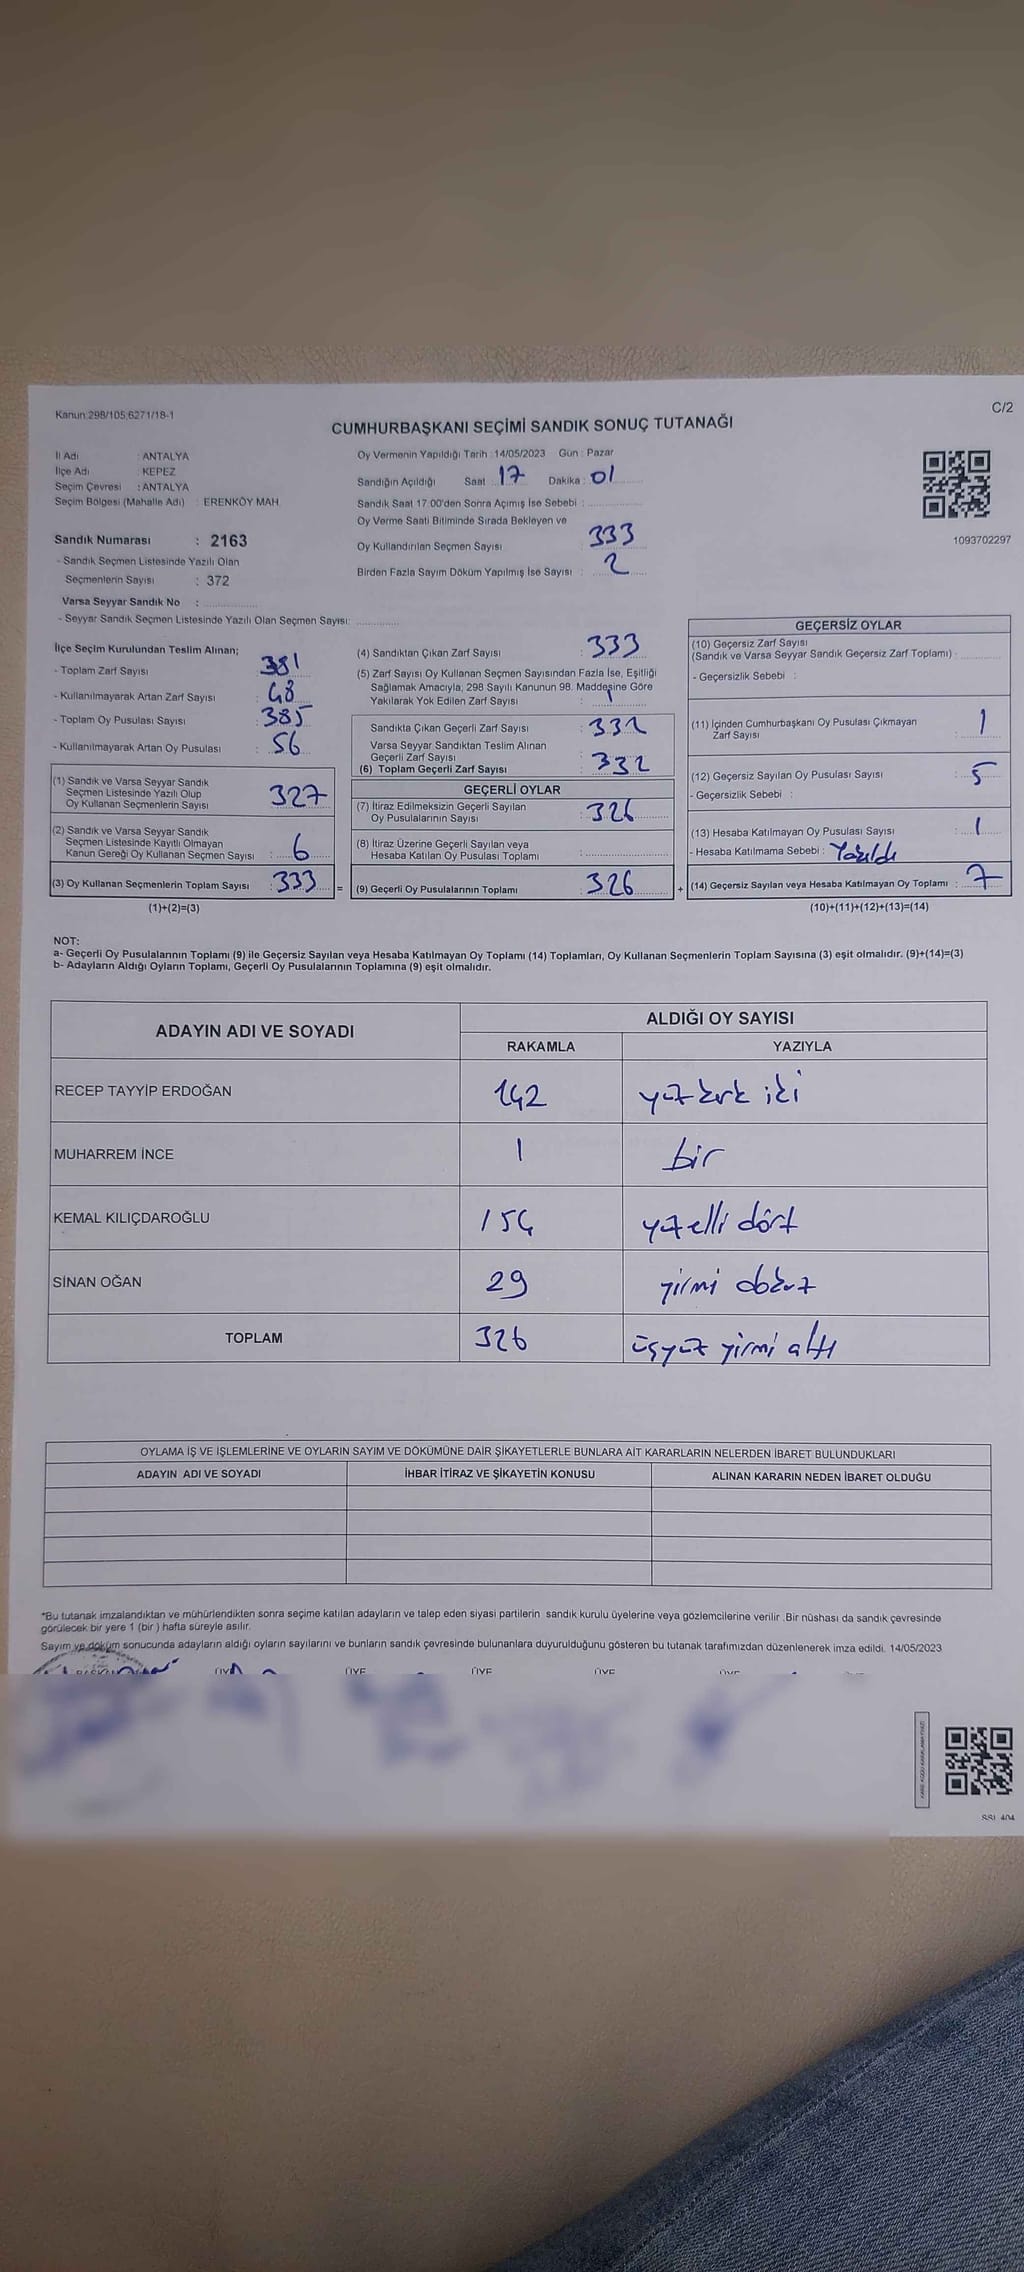 Kanun 298/105,6271/18-1
C/2
CUMHURBAŞKANI SEÇİMİ SANDIK SONUÇ TUTANAĞI
İl Adı : ANTALYA
İlçe Adı : KEPEZ
Seçim Çevresi : ANTALYA
Seçim Bölgesi (Mahalle Adı) : ERENKÖY MAH.
Oy Vermenin Yapıldığı Tarih : 14/05/2023 Gün : Pazar
Sandığın Açıldığı Saat : 17 Dakika : 01
Sandık Saat 17:00'den Sonra Açımış İse Sebebi :
Oy Verme Saati Bitiminde Sırada Bekleyen ve
Oy Kullandırılan Seçmen Sayısı : 333
Birden Fazla Sayım Döküm Yapılmış İse Sayısı : 2
1093702297
Sandık Numarası : 2163
- Sandık Seçmen Listesinde Yazılı Olan
Seçmenlerin Sayısı : 372
Varsa Seyyar Sandık No :
- Seyyar Sandık Seçmen Listesinde Yazılı Olan Seçmen Sayısı:
İlçe Seçim Kurulundan Teslim Alınan;
- Toplam Zarf Sayısı : 381
- Kullanılmayarak Artan Zarf Sayısı : 48
- Toplam Oy Pusulası Sayısı : 385
- Kullanılmayarak Artan Oy Pusulası : 56
(1) Sandık ve Varsa Seyyar Sandık
Seçmen Listesinde Yazılı Olup
Oy Kullanan Seçmenlerin Sayısı : 327
(2) Sandık ve Varsa Seyyar Sandık
Seçmen Listesinde Kayıtlı Olmayan
Kanun Gereği Oy Kullanan Seçmen Sayısı : 6
(3) Oy Kullanan Seçmenlerin Toplam Sayısı : 333 =
(1)+(2)=(3)
(4) Sandıktan Çıkan Zarf Sayısı : 333
(5) Zarf Sayısı Oy Kullanan Seçmen Sayısından Fazla İse, Eşitliği
Sağlamak Amacıyla, 298 Sayılı Kanunun 98. Maddesine Göre
Yakılarak Yok Edilen Zarf Sayısı : 1
Sandıkta Çıkan Geçerli Zarf Sayısı : 332
Varsa Seyyar Sandıktan Teslim Alınan
Geçerli Zarf Sayısı
(6) Toplam Geçerli Zarf Sayısı : 332
GEÇERLİ OYLAR
(7) İtiraz Edilmeksizin Geçerli Sayılan
Oy Pusulalarının Sayısı : 326
(8) İtiraz Üzerine Geçerli Sayılan veya
Hesaba Katılan Oy Pusulası Toplamı :
(9) Geçerli Oy Pusulalarının Toplamı : 326 +
GEÇERSİZ OYLAR
(10) Geçersiz Zarf Sayısı
(Sandık ve Varsa Seyyar Sandık Geçersiz Zarf Toplamı) :
- Geçersizlik Sebebi :
(11) İçinden Cumhurbaşkanı Oy Pusulası Çıkmayan
Zarf Sayısı : 1
(12) Geçersiz Sayılan Oy Pusulası Sayısı : 5
- Geçersizlik Sebebi :
(13) Hesaba Katılmayan Oy Pusulası Sayısı : 1
- Hesaba Katılmama Sebebi : Yakıldı
(14) Geçersiz Sayılan veya Hesaba Katılmayan Oy Toplamı : 7
(10)+(11)+(12)+(13)=(14)
NOT:
a- Geçerli Oy Pusulalarının Toplamı (9) ile Geçersiz Sayılan veya Hesaba Katılmayan Oy Toplamı (14) Toplamları, Oy Kullanan Seçmenlerin Toplam Sayısına (3) eşit olmalıdır. (9)+(14)=(3)
b- Adayların Aldığı Oyların Toplamı, Geçerli Oy Pusulalarının Toplamına (9) eşit olmalıdır.
ADAYIN ADI VE SOYADI ALDIĞI OY SAYISI
RAKAMLA YAZIYLA
RECEP TAYYİP ERDOĞAN 142 yüz kırk iki
MUHARREM İNCE 1 bir
KEMAL KILIÇDAROĞLU 154 yüz elli dört
SİNAN OĞAN 29 yirmi dokuz
TOPLAM 326 üçyüz yirmi altı
OYLAMA İŞ VE İŞLEMLERİNE VE OYLARIN SAYIM VE DÖKÜMÜNE DAİR ŞİKAYETLERLE BUNLARA AİT KARARLARIN NELERDEN İBARET BULUNDUKLARI
ADAYIN ADI VE SOYADI İHBAR İTİRAZ VE ŞİKAYETİN KONUSU ALINAN KARARIN NEDEN İBARET OLDUĞU
*Bu tutanak imzalandıktan ve mühürlendikten sonra seçime katılan adayların ve talep eden siyasi partilerin sandık kurulu üyelerine veya gözlemcilerine verilir .Bir nüshası da sandık çevresinde
görülecek bir yere 1 (bir ) hafta süreyle asılır.
Sayım ve döküm sonucunda adayların aldığı oyların sayılarını ve bunların sandık çevresinde bulunanlara duyurulduğunu gösteren bu tutanak tarafımızdan düzenlenerek imza edildi. 14/05/2023
BAŞKAN ÜYE ÜYE ÜYE ÜYE ÜYE
SSI: 404